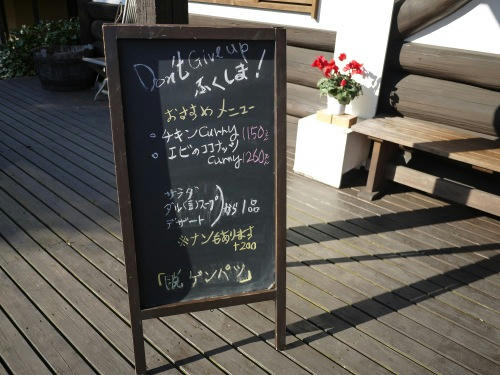 Don't Give up
ふくしま!
おすすめメニュー
○ チキンCurry 1150
○ エビのココナッツ
Curry 1260
サラダ
ダル(豆)スープ
デザート
から1品
※ナンもあります
+200
「脱 ゲンパツ」